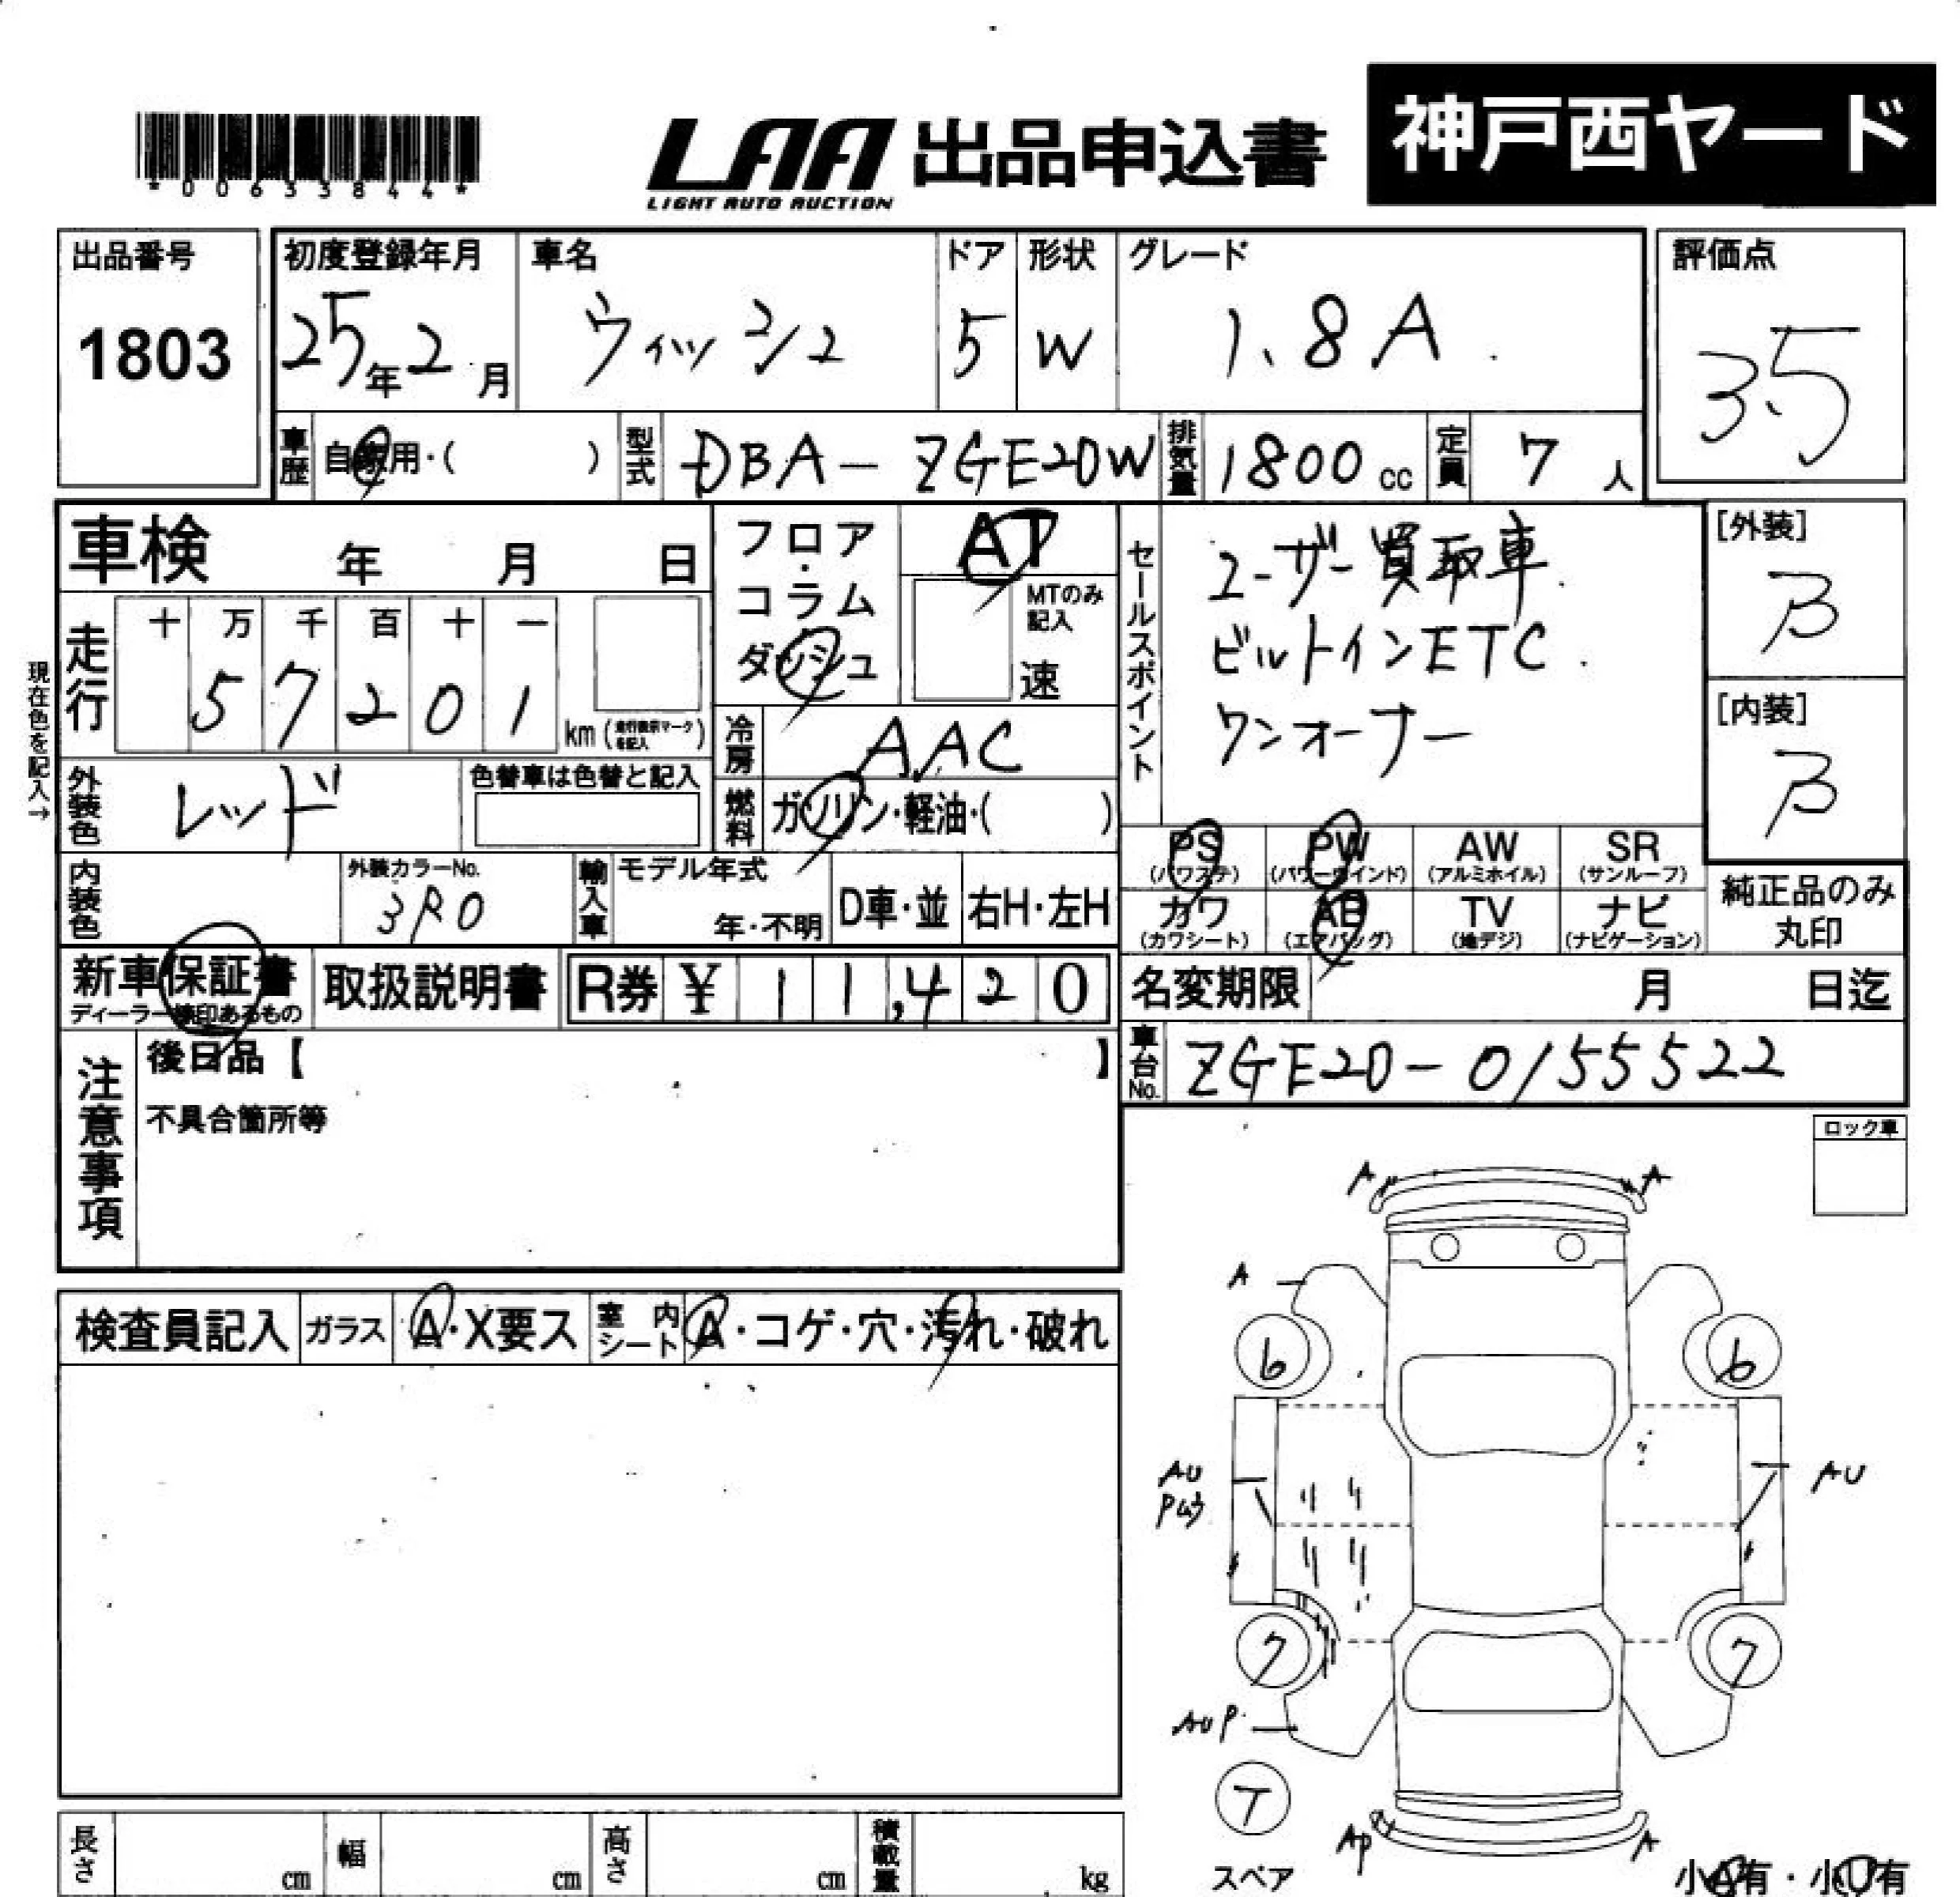 神戸西ヤード
LAA 出品申込書
LIGHT AUTO AUCTION
*00633844*
出品番号
1803
初度登録年月
25年2月
車名
ウィッシュ
ドア
5
形状
W
グレード
1.8A
評価点
3.5
車歴
自家用・( )
型式
DBA-ZGE20W
排気量
1800cc
定員
7人
車検 年 月 日
フロア・コラム
ダッシュ
AT
MTのみ記入
速
セールスポイント
ユーザー買取車.
ビルトインETC.
ワンオーナー
[外装]
B
[内装]
B
現在色を記入→
走行
十 万 千 百 十 一
5 7 2 0 1
km
冷房
AAC
外装色
レッド
色替車は色替と記入
燃料
ガソリン・軽油・( )
PS
(パワステ)
PW
(パワーウインド)
AW
(アルミホイル)
SR
(サンルーフ)
カワ
(カワシート)
AB
(エアバッグ)
TV
(地デジ)
ナビ
(ナビゲーション)
純正品のみ
丸印
内装色
外装カラーNo.
3R0
輸入車
モデル年式
年・不明
D車・並
右H・左H
新車保証書
取扱説明書
R券 ¥ 11,420
名変期限 月 日迄
車台No.
ZGE20-0155522
注意事項
後日品【 】
不具合箇所等
ロック車
検査員記入
ガラス
A・X要ス
室内シート
A・コゲ・穴・汚れ・破れ
A A
A
6 6
AU AU
7 7
AUP
T
スペア
AP A
小A有・小U有
長さ cm
幅 cm
高さ cm
積載量 kg